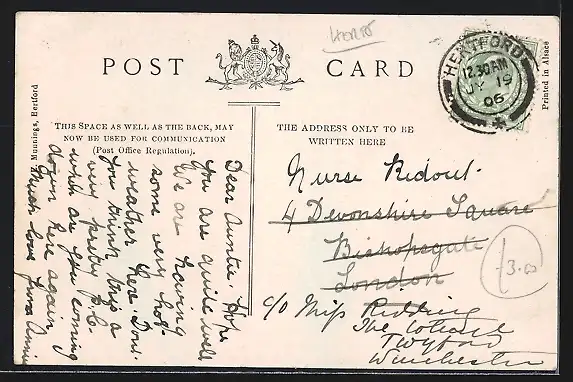 Herts
POST CARD
HERTFORD
12.30AM
JY 19
06
Printed in Alsace
Munnings, Hertford
THIS SPACE AS WELL AS THE BACK, MAY
NOW BE USED FOR COMMUNICATION
(Post Office Regulation).
THE ADDRESS ONLY TO BE
WRITTEN HERE
Dear Auntie. Hope
you are quite well
We are having
some very hot
weather here. Dont
you think this a
very pretty p.c.
when are you coming
down here again
Much love from Annie
Nurse Ridout.
4 Devonshire Square
Bishopsgate
London
c/o Miss Ridding
The Cottage
Twyford
Winchester